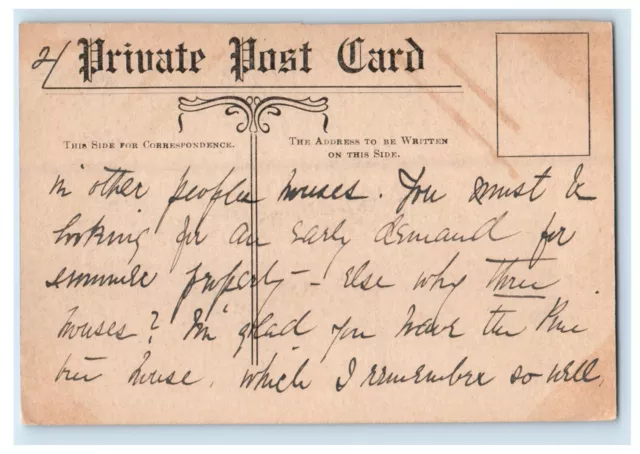 2/ Private Post Card
This Side for Correspondence.
The Address to be Written
on this Side.
in other peoples houses. You must be
looking for an early demand for
summer property - else why three
houses? I'm glad you have the Pine
tree house, which I remember so well,